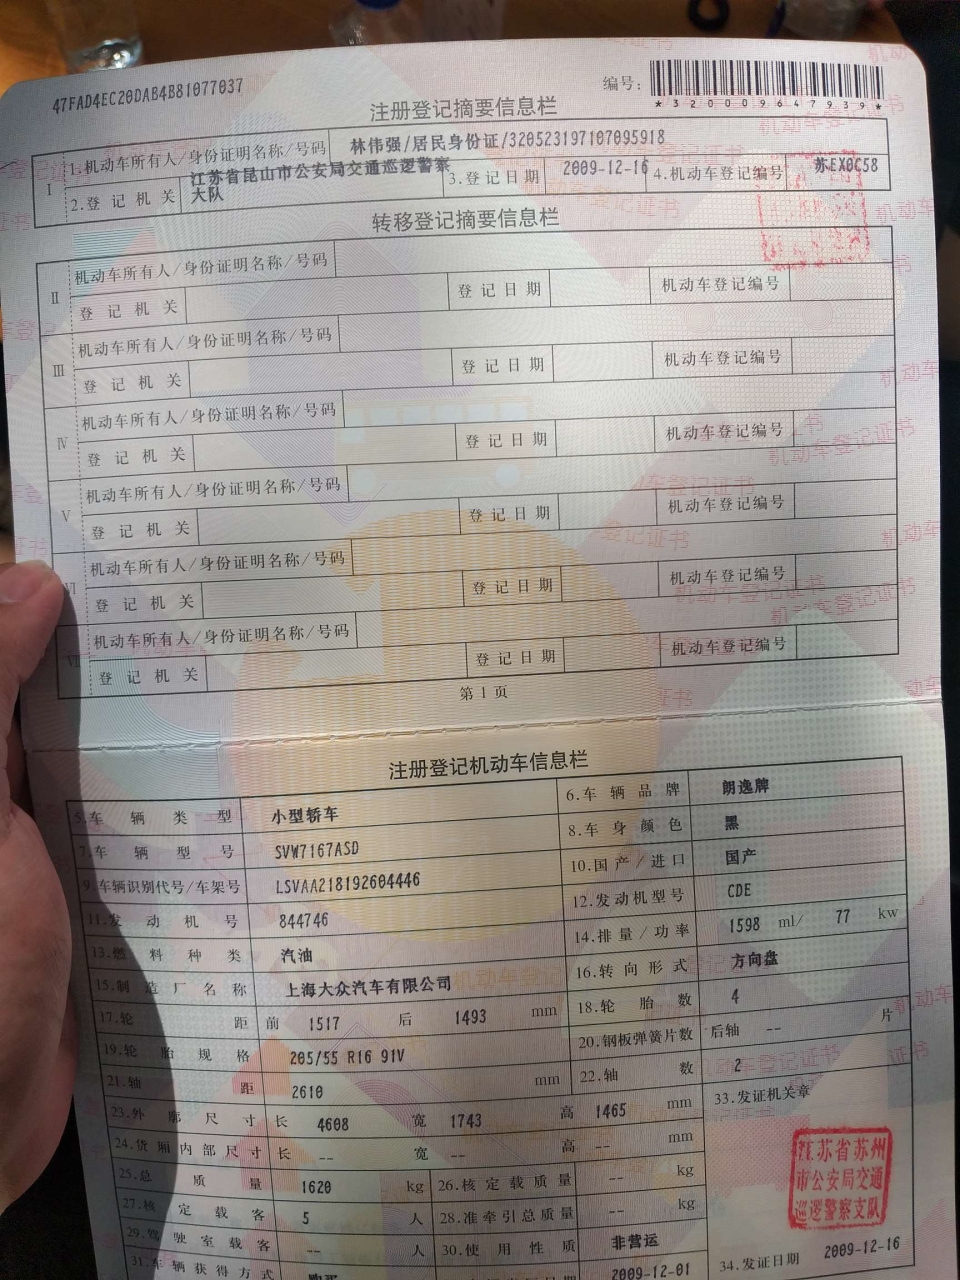 47FAD4EC20DAB4B81077037
编号:
*320009647939*
注册登记摘要信息栏
I
1.机动车所有人/身份证明名称/号码 林伟强/居民身份证/320523197107095918
2.登记机关 江苏省昆山市公安局交通巡逻警察大队 3.登记日期 2009-12-16 4.机动车登记编号 苏EX0C58
转移登记摘要信息栏
II
机动车所有人/身份证明名称/号码
登记机关 登记日期 机动车登记编号
III
机动车所有人/身份证明名称/号码
登记机关 登记日期 机动车登记编号
IV
机动车所有人/身份证明名称/号码
登记机关 登记日期 机动车登记编号
V
机动车所有人/身份证明名称/号码
登记机关 登记日期 机动车登记编号
VI
机动车所有人/身份证明名称/号码
登记机关 登记日期 机动车登记编号
VII
机动车所有人/身份证明名称/号码
登记机关 登记日期 机动车登记编号
第1页
注册登记机动车信息栏
5.车辆类型 小型轿车 6.车辆品牌 朗逸牌
7.车辆型号 SVW7167ASD 8.车身颜色 黑
9.车辆识别代号/车架号 LSVAA218192604446 10.国产/进口 国产
11.发动机号 844746 12.发动机型号 CDE
13.燃料种类 汽油 14.排量/功率 1598 ml/ 77 kw
15.制造厂名称 上海大众汽车有限公司 16.转向形式 方向盘
17.轮距 前 1517 后 1493 mm 18.轮胎数 4
19.轮胎规格 205/55 R16 91V 20.钢板弹簧片数 后轴 -- 片
21.轴距 2610 mm 22.轴数 2
23.外廓尺寸 长 4608 宽 1743 高 1465 mm 33.发证机关章
24.货厢内部尺寸 长 -- 宽 -- 高 -- mm
江苏省苏州市公安局交通巡逻警察支队
25.总质量 1620 kg 26.核定载质量 -- kg
27.核定载客 5 人 28.准牵引总质量 -- kg
29.驾驶室载客 -- 人 30.使用性质 非营运
31.车辆获得方式 购买 2009-12-01 34.发证日期 2009-12-16